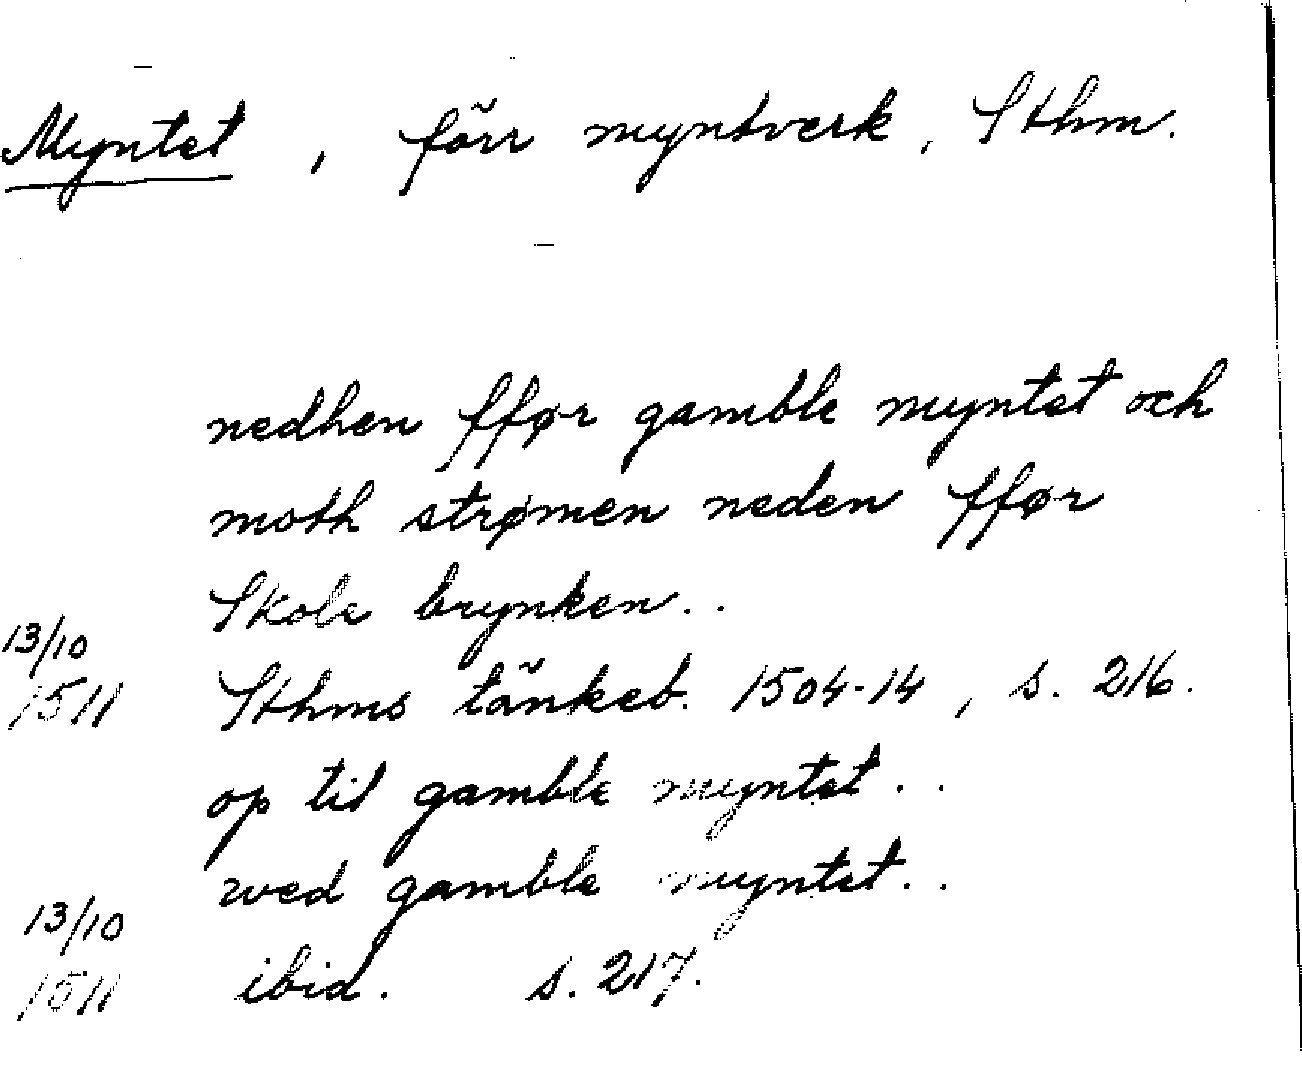 Myntet, förr myntverk, Sthm.
nedhen fför gamble myntet och
moth strømen neden ffør
Skole brynken..
13/10
1511 Sthms tänkeb. 1504-14, s. 216.
op til gamble myntet..
wed gamble myntet..
13/10
1511 ibid. s. 217.